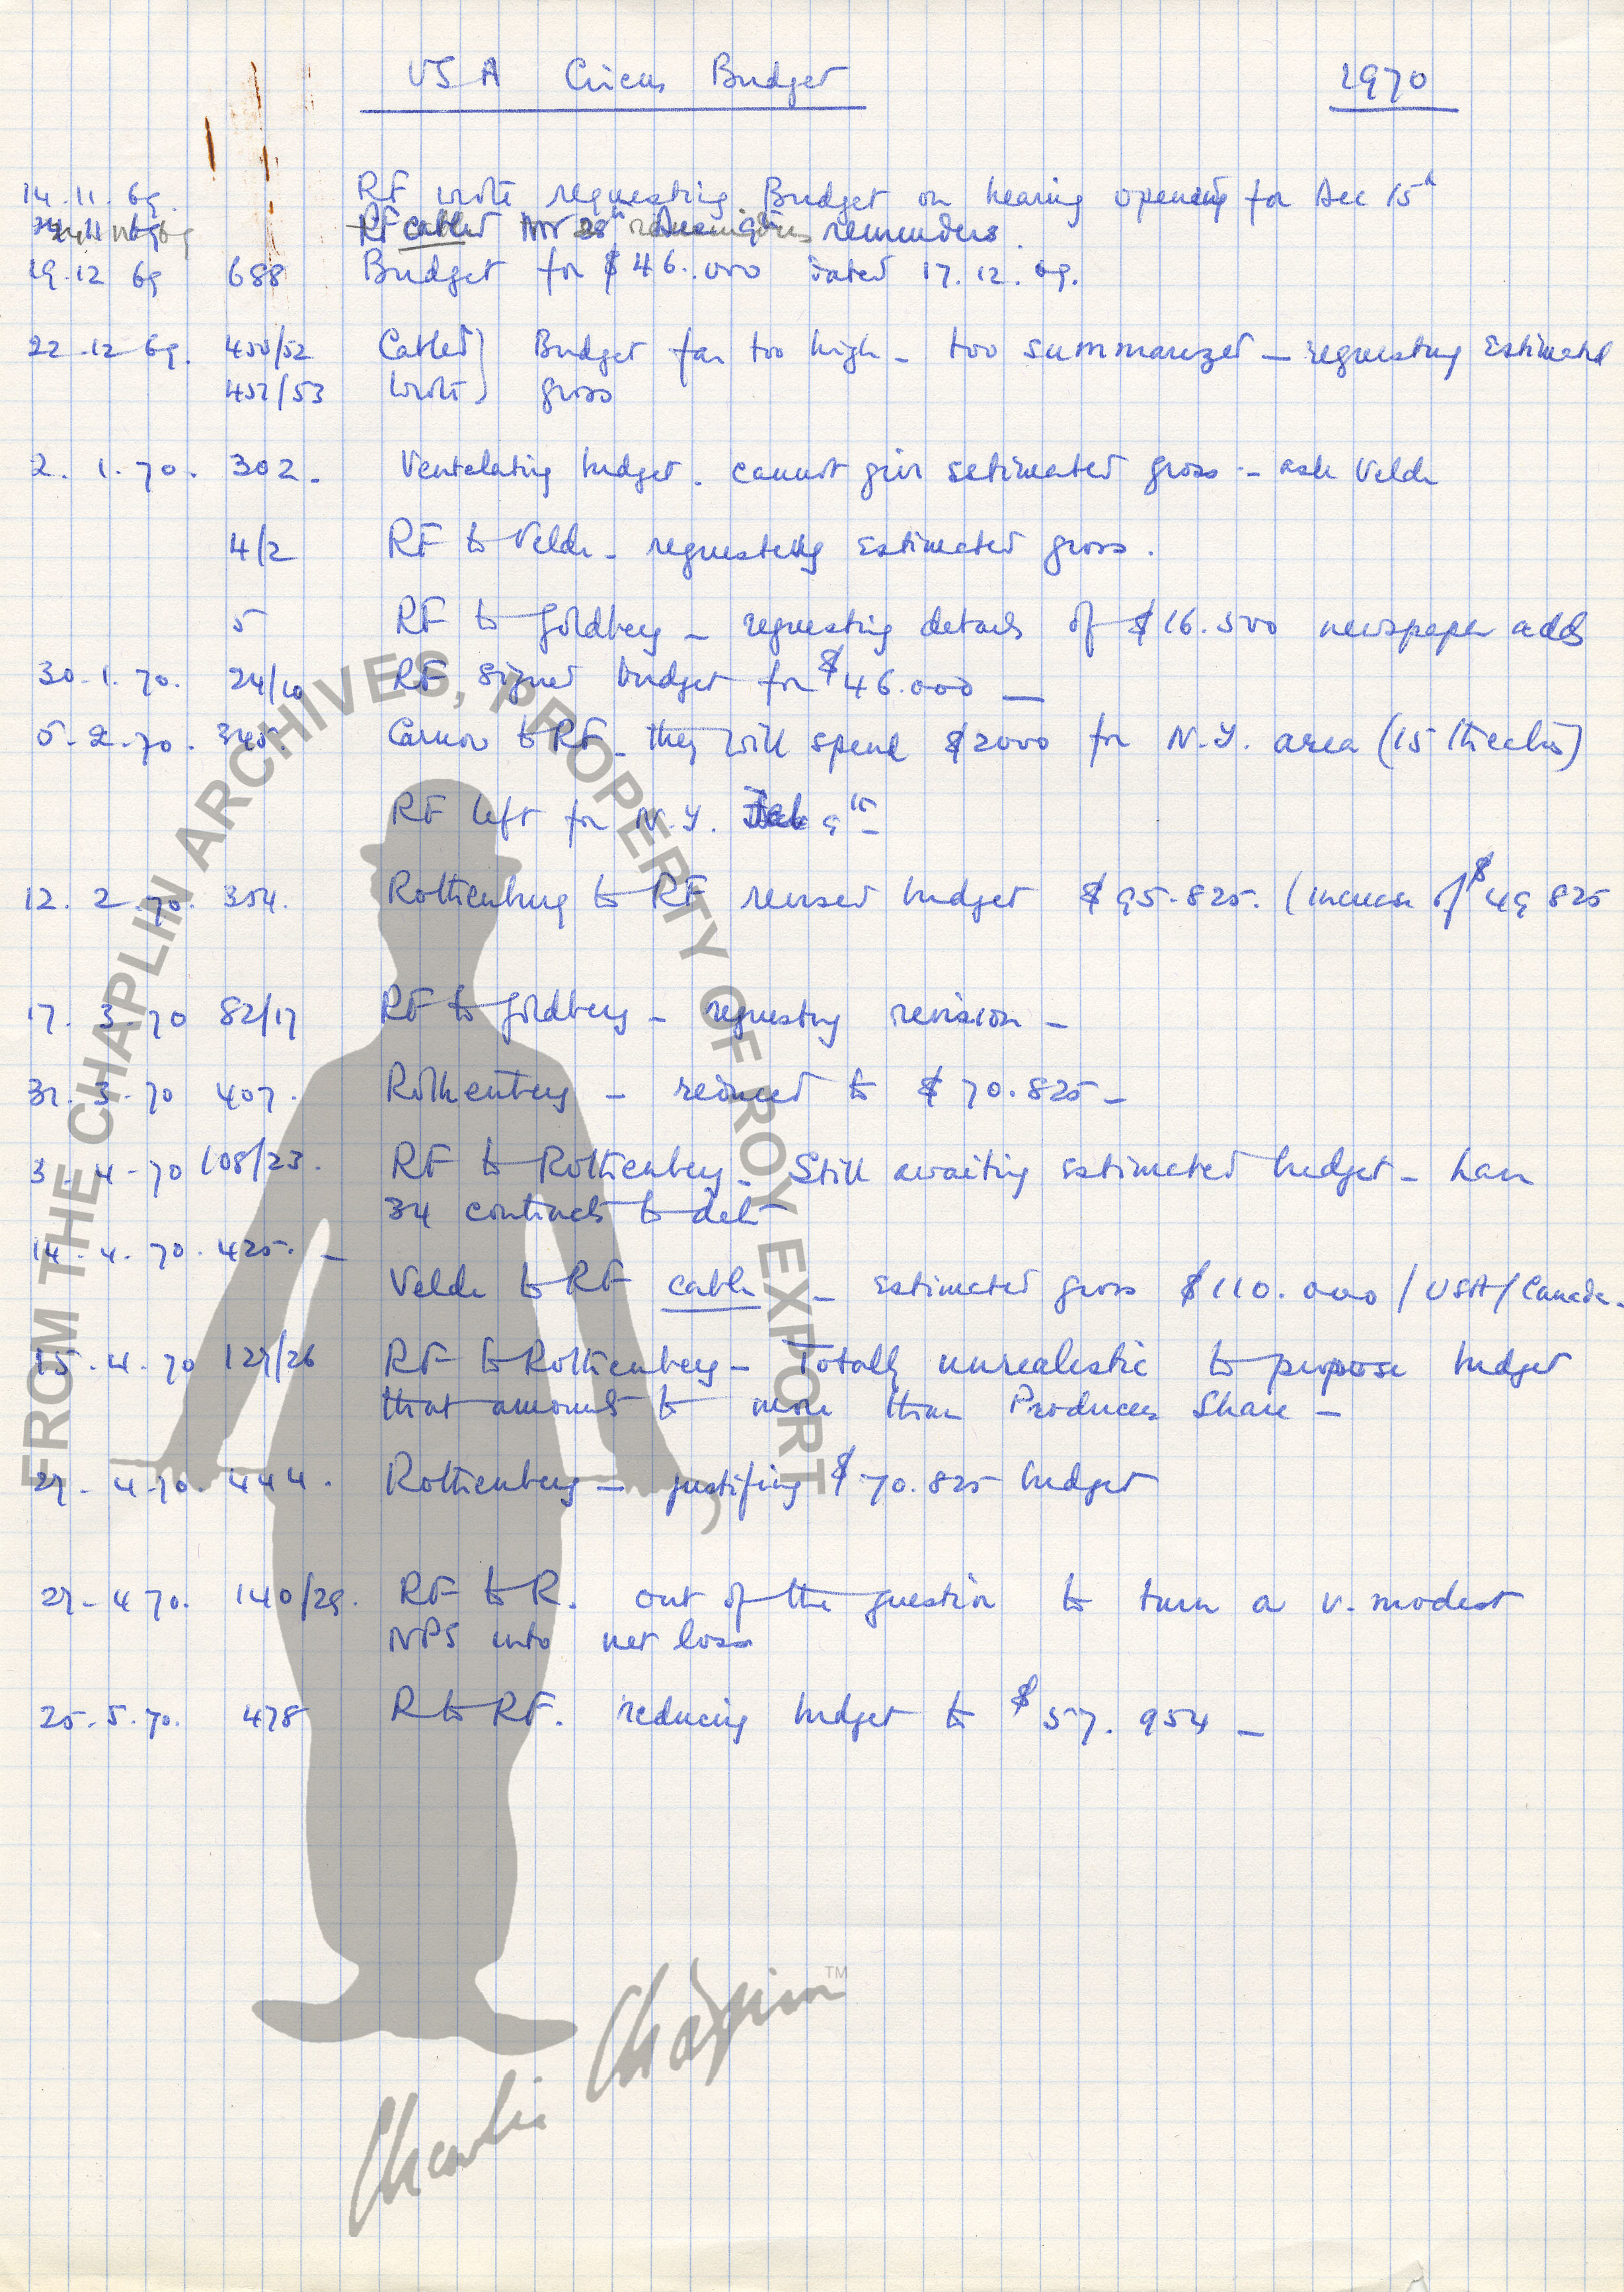 USA Circus Budget 1970
14.11.69. RF wrote requesting Budget on hearing opening for Dec 15th
RF cabled Nov 28th Dec 9th reminders.
19.12 69 688 Budget for $46.000 dated 17.12.69.
22.12 69. 450/52 Cabled) Budget far too high - too summarized - requesting estimated
452/53 wrote) gross
2. 1. 70. 302. Ventelating budget. cannot give estimated gross - ask Velde
4/2 RF to Velde - requesting estimated gross.
5 RF to Goldberg - requesting details of $16.500 newspaper adds
30.1.70. 24/10 RF signed budget for $46.000 -
5-2-70. 345. to RF - they will spend $2000 for N.Y. area (15 theatres)
RF left for N.Y. Feb 9th -
12. 2. 70. 354. Rothenberg to RF revised budget $95.825. (increase of $49 825
17. 3. 70 82/17 RF to Goldberg - requesting revision -
31. 3. 70 407. Rothenberg - reduced to $70.825 -
3. 4. 70 108/23. RF to Rothenberg. Still awaiting estimated budget - have
34 contracts to date
14. 4. 70. 425. -
Velde to RF cable - estimated gross $110.000 / USA/Canada.
15. 4. 70 127/26 RF to Rothenberg - Totally unrealistic to propose budget
that amounts to more than Producers Share -
27. 4. 70. 444. Rothenberg - justifying $70.825 budget
27. 4 70. 140/29. RF to R. out of the question to turn a v. modest
NPS into net loss
25. 5. 70. 478 R to RF. reducing budget to $57.954 -
FROM THE CHAPLIN ARCHIVES, PROPERTY OF ROY EXPORT
Charlie Chaplin TM